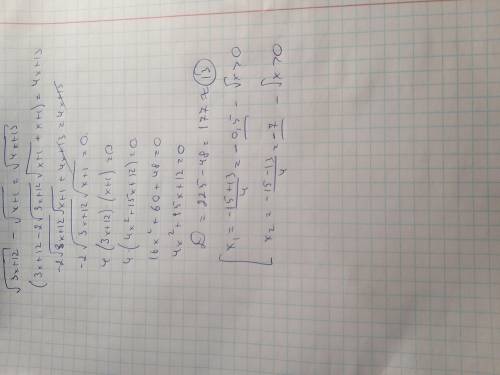 √(3x+12) - √(x+1) = √(4x+13)
(3x+12-2√(3x+12)√(x+1) + x+1) = 4x+13
-2√(3x+12)√(x+1) + 4x+13 = 4x+13
-2√(3x+12)√(x+1) = 0
4(3x+12)(x+1) = 0
4·(4x²+15x+12) = 0
16x²+60+48=0
4x²+15x+12=0
D = 225-48 = 177 ≈ 13
x₁ = (-15+13)/4 = -0,5 - √x>0
x₂ = (-15-13)/4 = -7 - √x>0